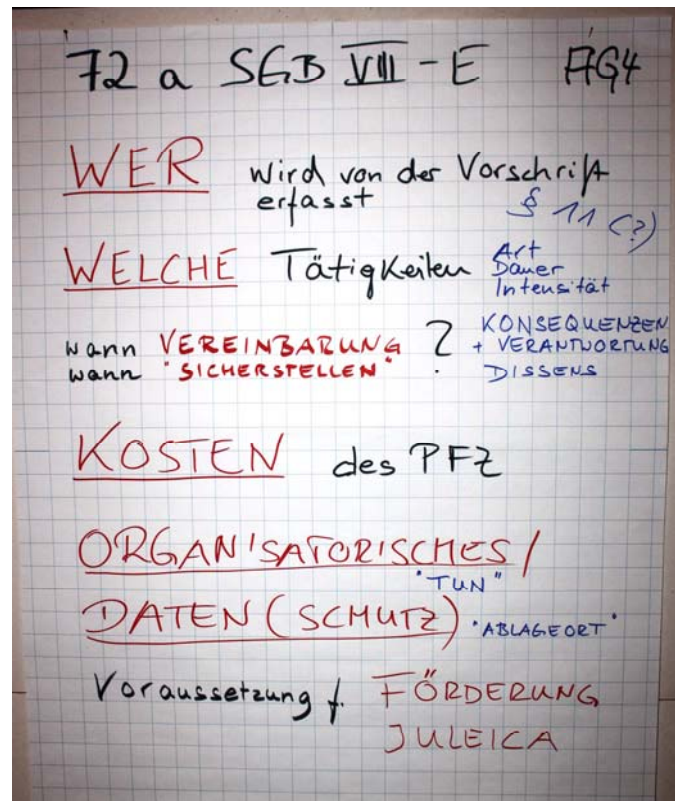 72 a SGB VIII - E AG4
WER wird von der Vorschrift
erfasst
§ 11 (?)
WELCHE Tätigkeiten Art
Dauer
Intensität
wann VEREINBARUNG ?
wann "SICHERSTELLEN"
KONSEQUENZEN
+ VERANTWORTUNG
DISSENS
KOSTEN des PFZ
ORGANISATORISCHES /
"TUN"
DATEN (SCHUTZ) "ABLAGEORT"
Voraussetzung f. FÖRDERUNG
JULEICA